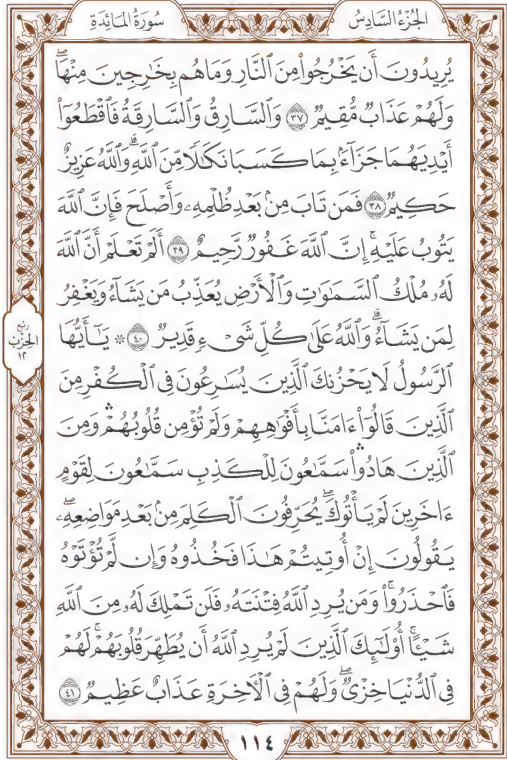 الجُزْءُ السَّادِسُ
سُورَةُ المَائِدَةِ
يُرِيدُونَ أَن يَخۡرُجُواْ مِنَ ٱلنَّارِ وَمَا هُم بِخَٰرِجِينَ مِنۡهَاۖ
وَلَهُمۡ عَذَابٞ مُّقِيمٞ ٣٧ وَٱلسَّارِقُ وَٱلسَّارِقَةُ فَٱقۡطَعُوٓاْ
أَيۡدِيَهُمَا جَزَآءَۢ بِمَا كَسَبَا نَكَٰلٗا مِّنَ ٱللَّهِۗ وَٱللَّهُ عَزِيزٌ
حَكِيمٞ ٣٨ فَمَن تَابَ مِنۢ بَعۡدِ ظُلۡمِهِۦ وَأَصۡلَحَ فَإِنَّ ٱللَّهَ
يَتُوبُ عَلَيۡهِۚ إِنَّ ٱللَّهَ غَفُورٞ رَّحِيمٌ ٣٩ أَلَمۡ تَعۡلَمۡ أَنَّ ٱللَّهَ
لَهُۥ مُلۡكُ ٱلسَّمَٰوَٰتِ وَٱلۡأَرۡضِ يُعَذِّبُ مَن يَشَآءُ وَيَغۡفِرُ
لِمَن يَشَآءُۗ وَٱللَّهُ عَلَىٰ كُلِّ شَيۡءٖ قَدِيرٞ ٤٠ ۞ يَٰٓأَيُّهَا
ٱلرَّسُولُ لَا يَحۡزُنكَ ٱلَّذِينَ يُسَٰرِعُونَ فِي ٱلۡكُفۡرِ مِنَ
ٱلَّذِينَ قَالُوٓاْ ءَامَنَّا بِأَفۡوَٰهِهِمۡ وَلَمۡ تُؤۡمِن قُلُوبُهُمۡۛ وَمِنَ
ٱلَّذِينَ هَادُواْۛ سَمَّٰعُونَ لِلۡكَذِبِ سَمَّٰعُونَ لِقَوۡمٍ
ءَاخَرِينَ لَمۡ يَأۡتُوكَۖ يُحَرِّفُونَ ٱلۡكَلِمَ مِنۢ بَعۡدِ مَوَاضِعِهِۦۖ
يَقُولُونَ إِنۡ أُوتِيتُمۡ هَٰذَا فَخُذُوهُ وَإِن لَّمۡ تُؤۡتَوۡهُ
فَٱحۡذَرُواْۚ وَمَن يُرِدِ ٱللَّهُ فِتۡنَتَهُۥ فَلَن تَمۡلِكَ لَهُۥ مِنَ ٱللَّهِ
شَيۡـًٔاۚ أُوْلَٰٓئِكَ ٱلَّذِينَ لَمۡ يُرِدِ ٱللَّهُ أَن يُطَهِّرَ قُلُوبَهُمۡۚ لَهُمۡ
فِي ٱلدُّنۡيَا خِزۡيٞۖ وَلَهُمۡ فِي ٱلۡأٓخِرَةِ عَذَابٌ عَظِيمٞ ٤١
ربع
الحِزْب
١٢
١١٤